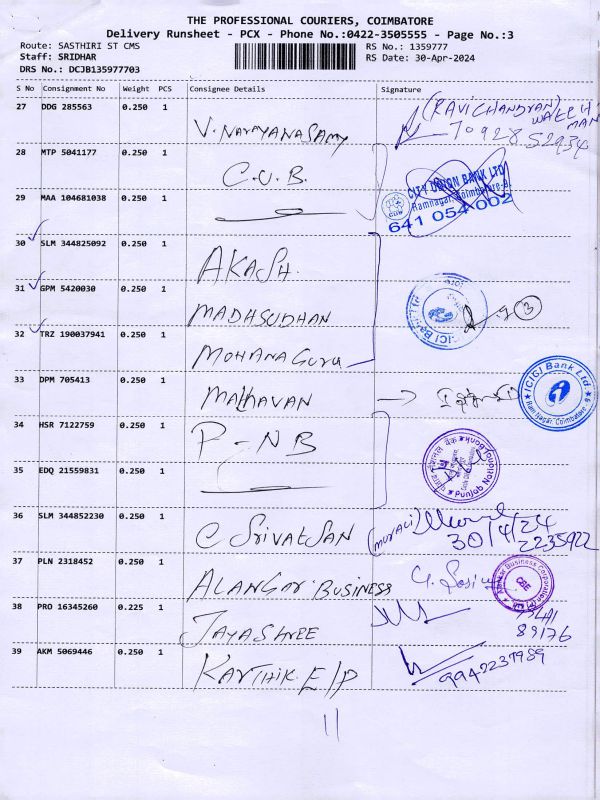 THE PROFESSIONAL COURIERS, COIMBATORE
Delivery Runsheet - PCX - Phone No.:0422-3505555 - Page No.:3
Route: SASTHIRI ST CMS
RS No.: 1359777
Staff: SRIDHAR
RS Date: 30-Apr-2024
DRS No.: DCJB135977703
S No Consignment No Weight PCS Consignee Details Signature
27 DDG 285563 0.250 1 V. NARAYANASAMY (RAVICHANDRAN) WATCH MAN
28 MTP 5041177 0.250 1 C.U.B.
29 MAA 104681038 0.250 1 CITY UNION BANK LTD
Ramnagar, Coimbatore-9.
641 054 002
30 SLM 344825092 0.250 1 AKASH.
31 GPM 5420030 0.250 1 MADHSUDHAN ICICI Bank Ltd 3
32 TRZ 190037941 0.250 1 MOHANA GURU
33 DPM 705413 0.250 1 MADHAVAN → ICICI Bank Ltd.
Ram Nagar, Coimbatore. 9
34 HSR 7122759 0.250 1 P-NB Punjab National Bank
35 EDQ 21559831 0.250 1
36 SLM 344852230 0.250 1 C SRIVATSAN (MURALI) 30/4/24
2235922
37 PLN 2318452 0.250 1 ALANGAR BUSINESS Business Corporation CBE
38 PRO 16345260 0.225 1 JAYASHREE 89176
39 AKM 5069446 0.250 1 KARTHIK E/P 9942237989
11